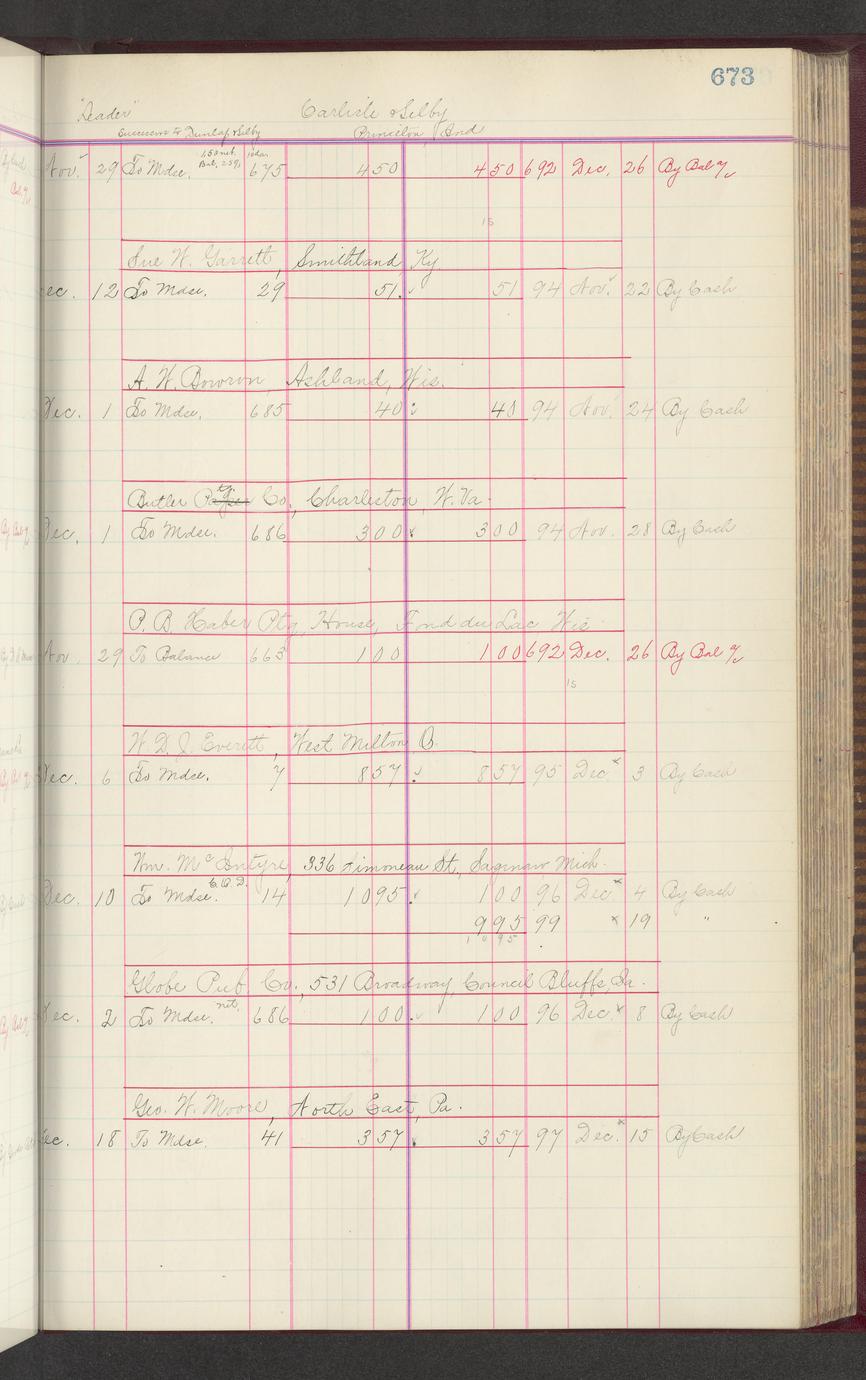 673
"Leader" Carlisle & Selby
Successors to Dunlap & Selby Princeton, Ind
1.50 net. 10 da.
Bal. 25%
Nov. 29 To Mdse. 675 450 450 692 Dec. 26 By Bal a/c
15
Sue W. Garrett, Smithland, Ky.
ec. 12 To Mdse. 29 51 ✓ 51 94 Nov. 22 By Cash
A. W. Bowron, Ashland, Wis.
Dec. 1 To Mdse. 685 40 40 94 Nov. 24 By Cash
Butler Ptg. Co., Charleston, W. Va.
Dec. 1 To Mdse. 686 300 ✓ 300 94 Nov. 28 By Cash
P. B. Haber Ptg. House, Fond du Lac Wis
Nov. 29 To Balance 663 100 100 692 Dec. 26 By Bal a/c
15
W. D. J. Everett, West Milton O.
Dec. 6 To Mdse. 7 857 ✓ 857 95 Dec. x 3 By Cash
Wm. McIntyre, 336 Simoneau St., Saginaw Mich.
C.O.D.
Dec. 10 To Mdse. 14 1095 ✓ 100 96 Dec x 4 By Cash
995 99 x 19 "
1095
Globe Pub. Co., 531 Broadway, Council Bluffs, Ia.
net.
Dec. 2 To Mdse. 686 100 ✓ 100 96 Dec. x 8 By Cash
Geo. W. Moore, North East, Pa.
ec. 18 To Mdse. 41 357 ✓ 357 97 Dec. x 15 By Cash